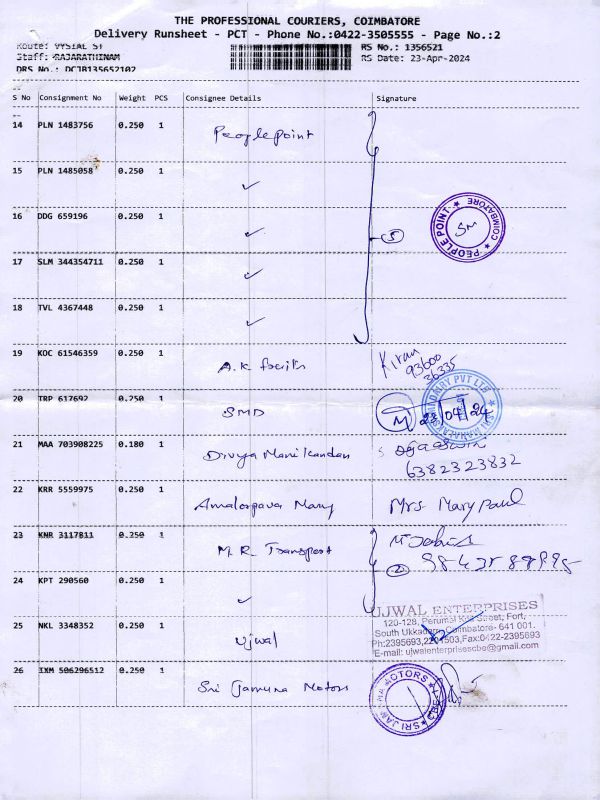 THE PROFESSIONAL COURIERS, COIMBATORE
Delivery Runsheet - PCT - Phone No.:0422-3505555 - Page No.:2
Route: VYSIAL ST
Staff: RAJARATHINAM
DRS No.: DCJB135652102
RS No.: 1356521
RS Date: 23-Apr-2024
S No Consignment No Weight PCS Consignee Details Signature
14 PLN 1483756 0.250 1 Peoplepoint
15 PLN 1485058 0.250 1 ✓
16 DDG 659196 0.250 1 ✓
5
PEOPLE POINT ★ COIMBATORE ★
SM
17 SLM 344354711 0.250 1 ✓
18 TVL 4367448 0.250 1 ✓
19 KOC 61546359 0.250 1 A.K
Kiran
93600
36335
20 TRP 617692 0.250 1 SMD
DAIRY PVT LTD
23/04/24
21 MAA 703908225 0.180 1 Divya Manikandan
6382323832
22 KRR 5559975 0.250 1 Amalorpava Mary Mrs Marypaul
23 KNR 3117811 0.250 1 M.R. Transport
2
24 KPT 290560 0.250 1 ✓
25 NKL 3348352 0.250 1 Ujwal
UJWAL ENTERPRISES
120-128, Perumal Koil Street, Fort,
South Ukkadam, Coimbatore- 641 001.
Ph:2395693, Fax:0422-2395693
E-mail: ujwalenterprisescbe@gmail.com
26 IXM 506296512 0.250 1 Sri Jamuna Motors
MOTORS